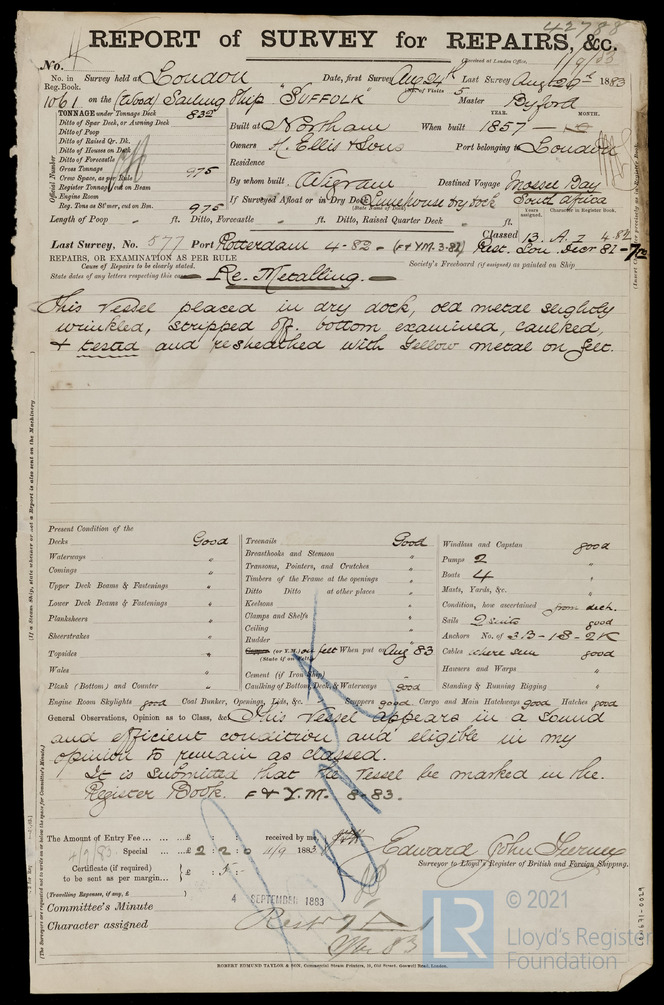 42798
REPORT of SURVEY for REPAIRS, &c.
(Received at London Office, 1/9/83
No. 4
No. in Reg. Book. Survey held at London Date, first Survey Aug 24th Last Survey Aug 29th 1883
(No. of Visits 5
1061 on the (Wood) Sailing Ship "SUFFOLK" Master Byford
TONNAGE under Tonnage Deck 832
Ditto of Spar Deck, or Awning Deck
Ditto of Poop
Ditto of Raised Qr. Dk.
Ditto of Houses on Deck
Ditto of Forecastle
Gross Tonnage 975
Crew Space, as per Rule
Register Tonnage, cut on Beam
Engine Room
Reg. Tons as St'mer, cut on Bm. 975
Official Number
YEAR. MONTH.
Built at Northam When built 1857
Owners H. Ellis & Sons Port belonging to London
Residence
By whom built Wigram Destined Voyage Mossel Bay
South Africa
If Surveyed Afloat or in Dry Dock Limehouse Dry Dock
(State Name of Dock.)
Years assigned. Character in Register Book.
Length of Poop ft. Ditto, Forecastle ft. Ditto, Raised Quarter Deck ft.
Last Survey, No. 577 Port Rotterdam 4-82 (F&YM. 3-82) Classed 13. A. 7 4-82
Past. Lon. Decr 82-7
REPAIRS, OR EXAMINATION AS PER RULE
Cause of Repairs to be clearly stated.
State dates of any letters respecting this case Re-Metalling.
Society's Freeboard (if assigned) as painted on Ship
This vessel placed in dry dock, old metal slightly
wrinkled, stripped off. bottom examined, caulked,
& tested and resheathed with Yellow metal on felt.
(If a Steam Ship, state whether or not a Report is also sent on the Machinery
Present Condition of the
Decks Good
Waterways "
Comings "
Upper Deck Beams & Fastenings "
Lower Deck Beams & Fastenings "
Planksheers "
Sheerstrakes "
Topsides "
Wales "
Plank (Bottom) and Counter "
Treenails Good
Breasthooks and Stemson "
Transoms, Pointers, and Crutches "
Timbers of the Frame at the openings "
Ditto Ditto at other places "
Keelsons "
Clamps and Shelfs "
Ceiling "
Rudder "
Copper (or Y.M.) on felt When put on Aug 83
(State if on Felt)
Cement (if Iron Ship)
Caulking of Bottom, Deck, & Waterways good
Windlass and Capstan good
Pumps 2 "
Boats 4 "
Masts, Yards, &c. "
Condition, how ascertained from deck.
Sails 2 suits good
Anchors No. of 3.B-1S-2K
Cables where seen good
Hawsers and Warps "
Standing & Running Rigging "
Engine Room Skylights good Coal Bunker, Openings, Lids, &c. Scuppers good Cargo and Main Hatchways good Hatches good
General Observations, Opinion as to Class, &c. This Vessel appears in a sound
and efficient condition and eligible in my
opinion to remain as classed.
It is submitted that the Vessel be marked in the
Register Book. F & Y.M. 8-83.
The Amount of Entry Fee ... £ : : received by me,
4/9/83 Special ... £ 2 : 2 : 0 4/9 1883
Certificate (if required) to be sent as per margin... £ : 5 :
(Travelling Expenses, if any, £
Edward John Tierney
Surveyor to Lloyd's Register of British and Foreign Shipping.
Committee's Minute 4 SEPTEMBER 1883
Character assigned
83
(The Surveyors are requested not to write on or below the space for Committee's Minute.)
ROBERT EDMUND TAYLOR & SON, Commercial Steam Printers, 19, Old Street, Goswell Road, London.
LR
© 2021
Lloyd's Register
Foundation